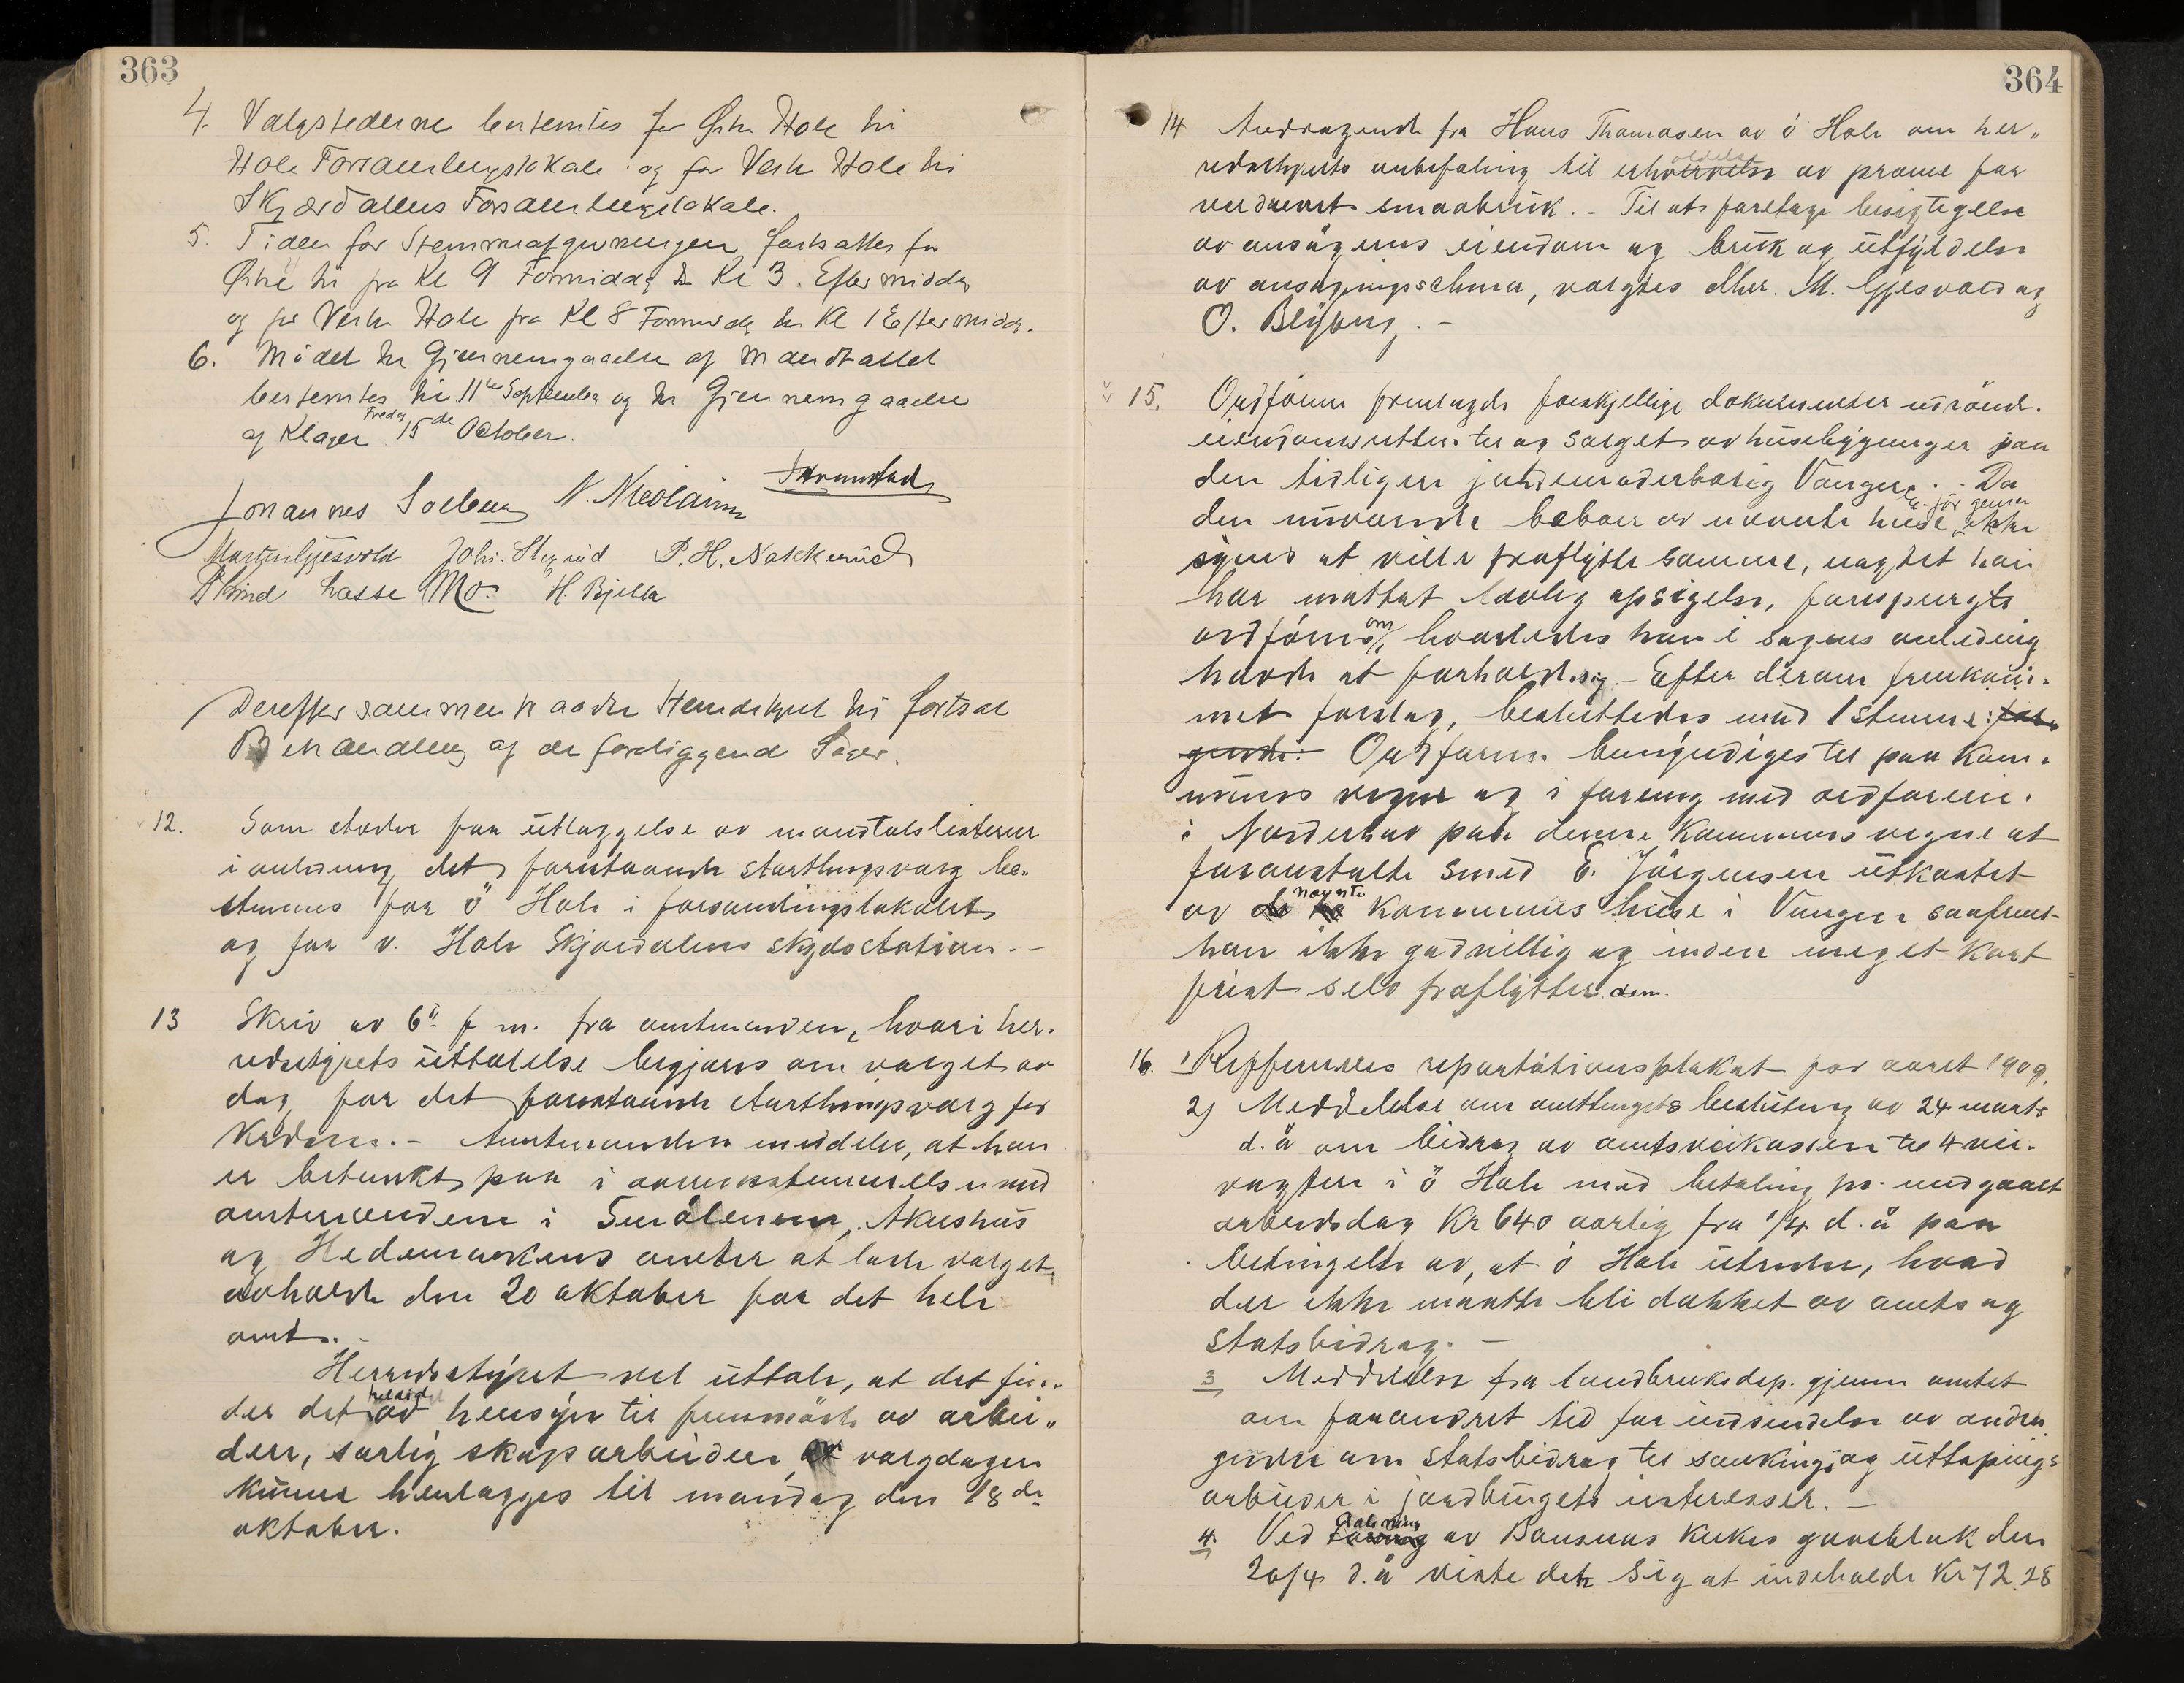 363
4. Valgstederne bestemtes for Østre Hole til
Hole Forsamlingslokale og for Vestre Hole til
Skjærdalens Forsamlingslokale.
5. Tiden for Stemmeafgivningen fastsattes for
Østre til fra Kl 9 Formiddag til Kl 3. Eftermiddag
og for Vestre Hole fra Kl 8 Formiddag til Kl 1 Eftermiddag.
6. Mødet til Gjennemgaaelse af Mandtallet
bestemtes til 11te September og til Gjennemgaaelse
af Klager Fredag 15de October.
Johannes Solberg N. Nicolaisen
Martin Gjesvold Johs. Stixrud P. H. Nakkerud
Lasse Mo. H. Bjella
Derefter sammentraadte Herredsstyret til fortsat
Behandling af de foreliggende Sager.
12. Som steder for utlæggelse av mandtalslisterne
i anledning det forestaaende storthingsvalg be-
stemmes for ö Hole i forsamlingslokalet
og for v. Hole Skjærdalens skydsstation. -
13 Skriv av 6te f m. fra amtmanden, hvori her-
redsstyrets uttalelse begjæres om valget av
dag for det forestaaende storthingsvalg for
Kredsen. - Amtmanden meddeler, at han
er betænkt paa i overensstemmelse med
amtmændene i Smålenene, Akershus
og Hedemarkens amter at lade valget
avholde den 20 oktober for det hele
amt. -
Herredsstyret vil uttale, at det fin-
der det av hensyn til fremmöte av arbei-
dere, særlig skogsarbeidere, at valgdagen
kunne henlægges til mandag den 18de
oktober.
364
14 Andragende fra Hans Thomasen av ö Hole om her-
redsstyrets anbefaling til erholdelse av præmie for
veldrevet smaabruk. - Til at foretage besigtigelse
av ansögerens eiendom og bruk og utfyldelse
av ansögningsschema, valgtes d'hrr. M. Gjesvold og
O. Blyberg. -
15. Ordförer fremlagde forskjellige dokumenter vedrörende
eiendomsretten til og salget av husebygninger paa
den tidligere jordemoderbolig Vangen. - Da
den nuværende beboer av nævnte huse E. Jörgensen ikke
synes at ville fraflytte samme, uagtet han
har mottat lovlig opsigelse, forespurgte
ordförer om, hvorledes han i sagens anledning
havde at forholde sig. - Efter derom fremkom-
met forslag, besluttedes med 1 stemme: föl-
gende: Ordföreren bemyndiges til paa kom-
munens vegne og i forening med ordföreren
i Norderhov paa denne kommunes vegne at
foranstalte smed E. Jörgensen utkastet
av de to nævnte kommunes huse i Vangen saafremt
han ikke godvillig og inden meget kort
frist selv fraflytter dem.
16. 1 Refereredes repartitionsplakat for aaret 1909.
2) Meddelelse om amtthingets beslutning av 24 marts
d. å om bidrag av amtsveikassen til 4 vei-
vogtere i ö Hole med betaling pr. medgaaet
arbeidsdag Kr 640 aarlig fra 1/4 d. å paa
betingelse av, at ö Hole utreder, hvad
der ikke maatte bli dækket av amts og
statsbidrag. -
3 Meddelelse fra landbruksdep. gjennem amtet
om forandret tid for indsendelse av andra-
gender om statsbidrag til sænknings og uttapnings
arbeider i jordbrugets interesser. -
4. Ved aabning av Bønsnes Kirkes gaveblok den
20/4 d. å viste det sig at indeholde Kr 72.28